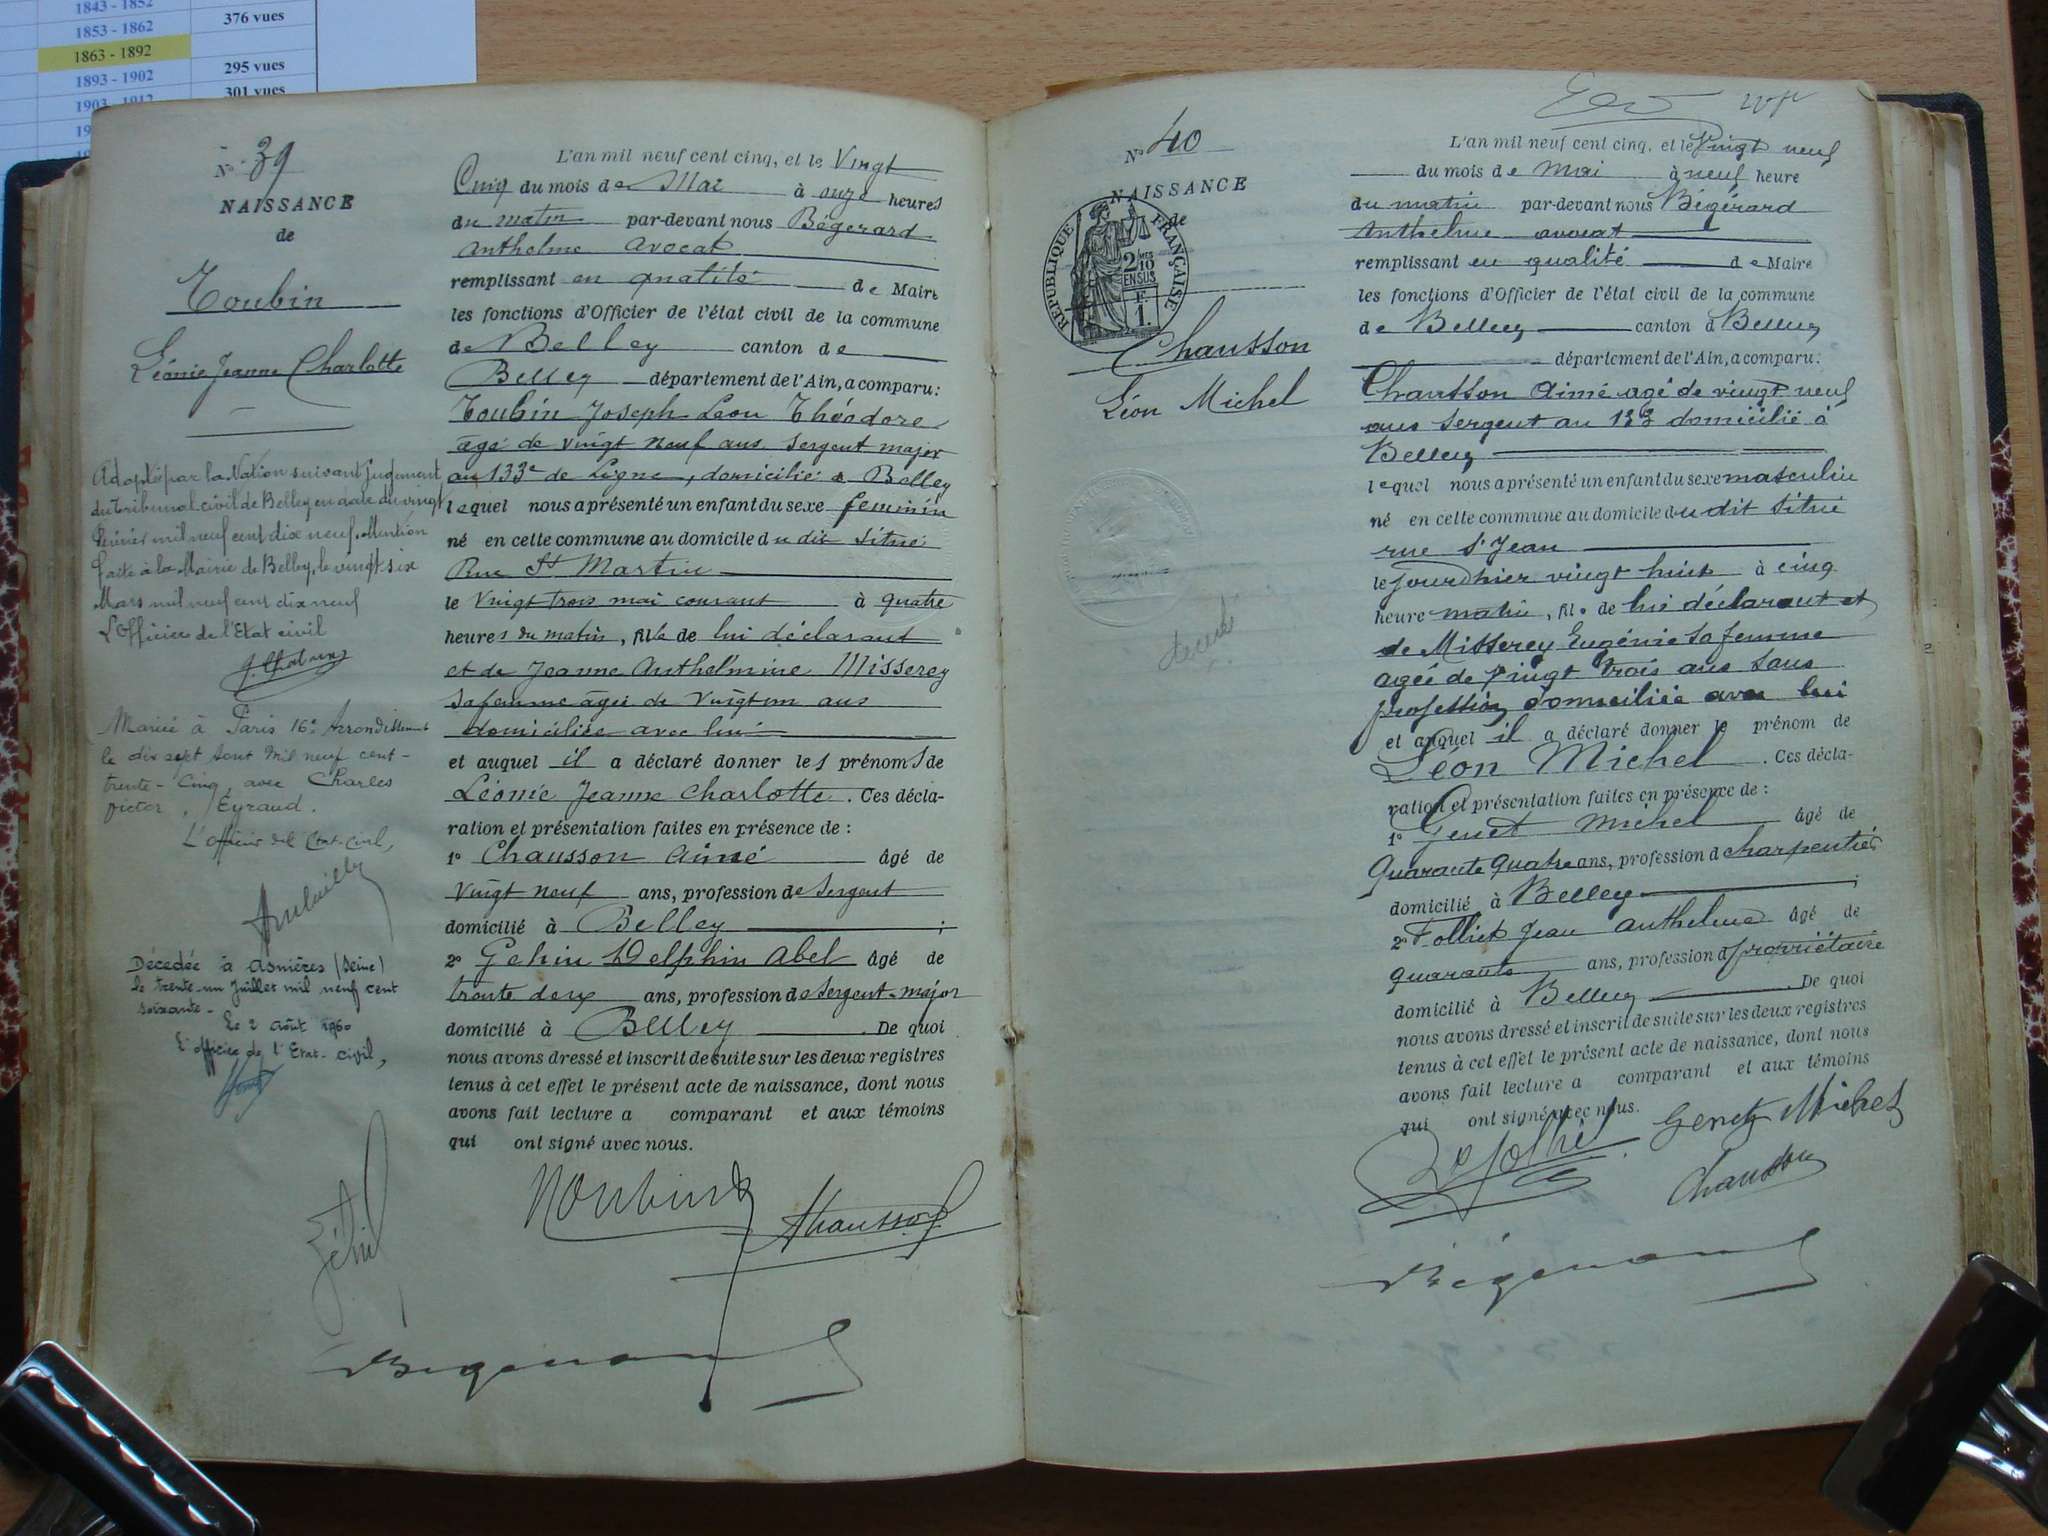 1843 - 1852
1853 - 1862
376 vues
1863 - 1892
1893 - 1902
295 vues
1903 - 1912
301 vues
N° 39
NAISSANCE
de
Toubin
Léonie Jeanne Charlotte
Adoptée par la Nation suivant jugement
du tribunal civil de Belley en date du vingt
février mil neuf cent dix neuf. Mention
faite à la Mairie de Belley, le vingt six
Mars mil neuf cent dix neuf
L'Officier de l'Etat civil
Mariée à Paris 16e Arrondissement
le dix sept Aout mil neuf cent-
trente-cinq, avec Charles
Victor, Eyraud.
L'officier de l'Etat-Civil,
Décédée à Asnières (Seine)
le trente-un Juillet mil neuf cent
soixante-
Le 2 Août 1960
L'officier de l'Etat-civil,
L'an mil neuf cent cinq, et le Vingt
Cinq du mois de Mai à onze heures
du matin par-devant nous Bégerard
Anthelme avocat
remplissant en qualité de Maire
les fonctions d'Officier de l'état civil de la commune
de Belley canton de
Belley département de l'Ain, a comparu:
Toubin Joseph Leon Théodore
agé de vingt neuf ans Sergent major
au 133e de Ligne, domicilié à Belley
lequel nous a présenté un enfant du sexe feminin
né en cette commune au domicile du dit situé
Rue St Martin
le Vingt trois mai courant à quatre
heures du matin, fille de lui déclarant
et de Jeanne Anthelmine Misserey
sa femme âgée de vingt un ans
domiciliée avec lui
et auquel il a déclaré donner les prénoms de
Léonie Jeanne Charlotte. Ces décla-
ration et présentation faites en présence de :
1° Chausson Aimé âgé de
Vingt neuf ans, profession de Sergent
domicilié à Belley ;
2° Gehin Delphin Abel âgé de
trente deux ans, profession de Sergent-major
domicilié à Belley. De quoi
nous avons dressé et inscrit de suite sur les deux registres
tenus à cet effet le présent acte de naissance, dont nous
avons fait lecture a comparant et aux témoins
qui ont signé avec nous.
Toubin
Chausson
Géhin
Bégerard
N° 40
NAISSANCE
de
RÉPUBLIQUE FRANÇAISE
2/10
EN SUS
F.
1.
Chausson
Léon Michel
décédé
L'an mil neuf cent cinq, et le Vingt neuf
du mois de Mai à neuf heure
du matin par-devant nous Bégérard
Anthelme avocat
remplissant en qualité de Maire
les fonctions d'Officier de l'état civil de la commune
de Belley canton d Belley
département de l'Ain, a comparu:
Chausson Aimé agé de vingt neuf
ans sergent au 133 domicilié à
Belley
lequel nous a présenté un enfant du sexe masculin
né en cette commune au domicile du dit situé
rue St Jean
le jourdhier vingt huit à cinq
heure matin, fils de lui déclarant et
de Misserey Eugénie sa femme
agée de vingt trois ans sans
profession domiciliée avec lui
et auquel il a déclaré donner le prénom de
Léon Michel. Ces décla-
ration et présentation faites en présence de :
1° Genet Michel âgé de
Quarante quatre ans, profession d charpentier
domicilié à Belley ;
2° Folliet Jean Anthelme âgé de
quarante ans, profession d propriétaire
domicilié à Belley. De quoi
nous avons dressé et inscrit de suite sur les deux registres
tenus à cet effet le présent acte de naissance, dont nous
avons fait lecture a comparant et aux témoins
qui ont signé avec nous.
Genet Michel
Folliet
Chausson
Bégerard